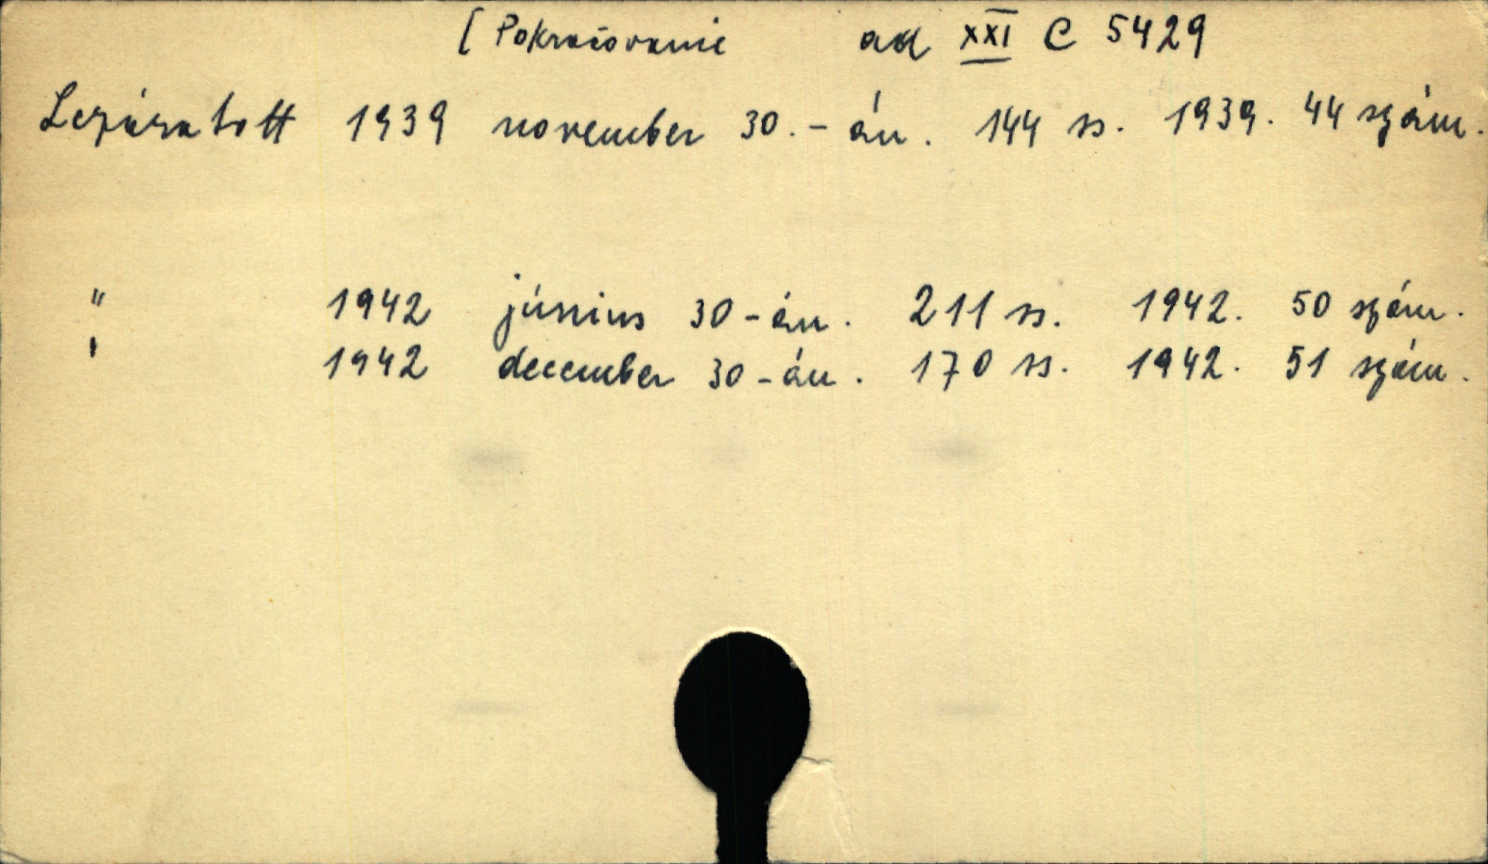 [ Pokračovanie ad XXI C 5429
Lezáratott 1939 november 30.-án. 144 ss. 1939. 44 szám.
" 1942 június 30-án. 211 ss. 1942. 50 szám.
' 1942 december 30-án. 170 ss. 1942. 51 szám.